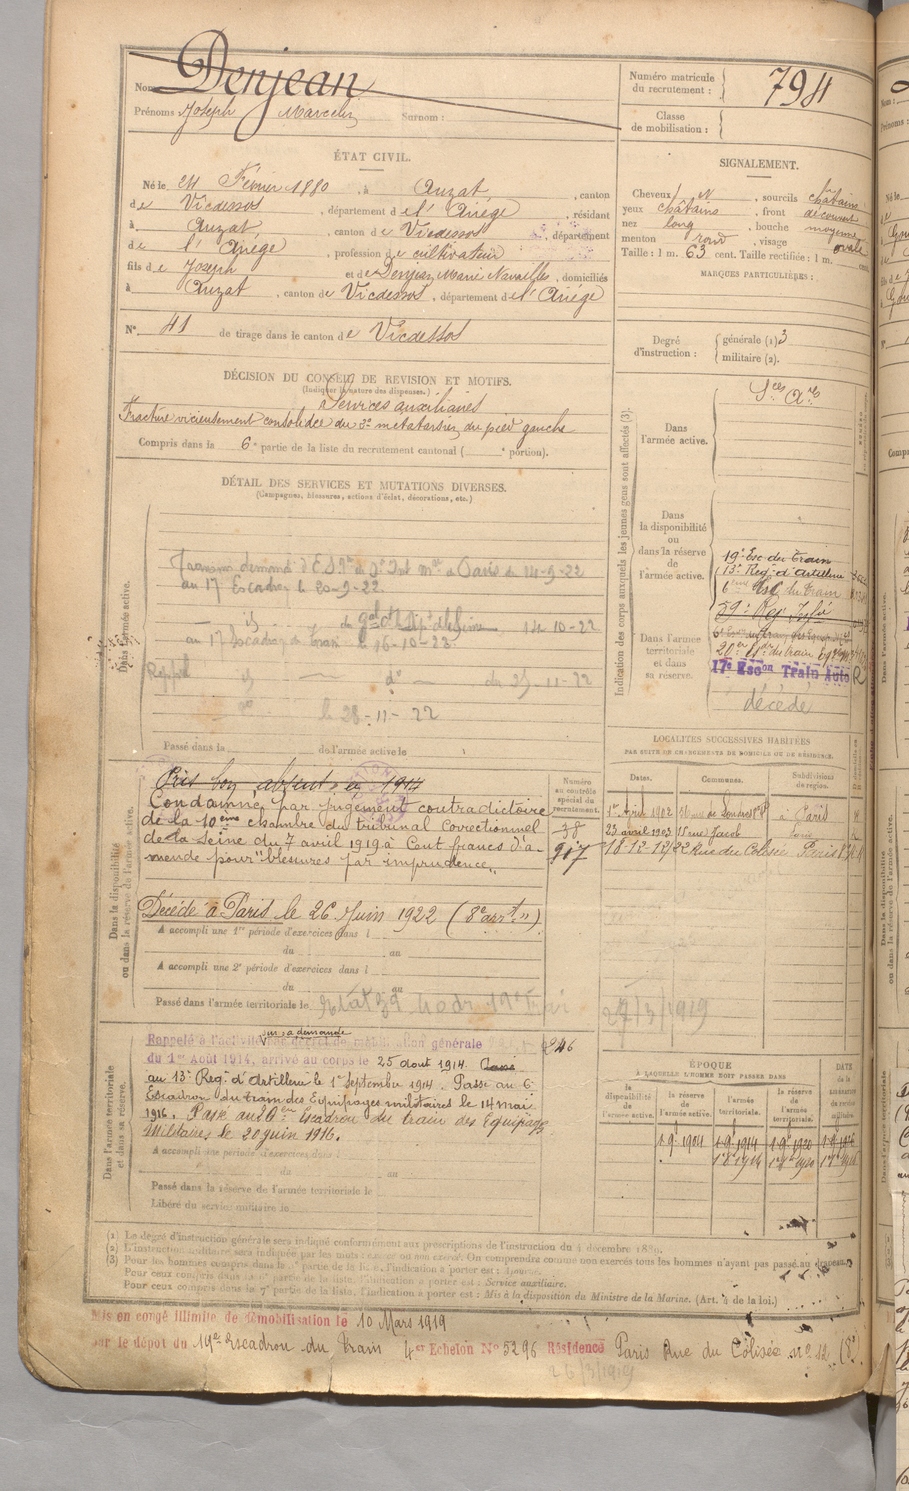 Nom Denjean
Prénoms Joseph Marcelin Surnom :
Numéro matricule du recrutement : 794
Classe de mobilisation :
ÉTAT CIVIL.
Né le 24 Février 1880, à Auzat, canton
de Vicdessos, département de l'Ariège, résidant
à Auzat, canton de Vicdessos, département
de l'Ariège, profession de cultivateur
fils de Joseph et de Denjean Marie Navailles, domiciliés
à Auzat, canton de Vicdessos, département de l'Ariége
N° 41 de tirage dans le canton de Vicdessos
SIGNALEMENT.
Cheveux N, sourcils châtains
yeux châtains, front découvert
nez long, bouche moyenne
menton rond, visage ovale
Taille : 1 m. 63 cent. Taille rectifiée : 1 m. cent.
MARQUES PARTICULIÈRES :
Degré d'instruction : générale (1) 3
militaire (2).
DÉCISION DU CONSEIL DE REVISION ET MOTIFS.
(Indiquer la nature des dispenses.)
Services auxiliaires
Fracture vicieusement consolidée du 3e métatarsien du pied gauche
Compris dans la 6e partie de la liste du recrutement cantonal ( e portion).
DÉTAIL DES SERVICES ET MUTATIONS DIVERSES.
(Campagnes, blessures, actions d'éclat, décorations, etc.)
Dans l'armée active.
14-9-22
au 17 Escadron le 20-9-22
14-10-22
au 17 Escadron du train le 16-10-22
Rappel
le 28-11-22
Passé dans la de l'armée active le
Indication des corps auxquels les jeunes gens sont affectés (3).
Dans l'armée active. Sces Ares
Dans la disponibilité ou dans la réserve de l'armée active.
19e Esc du Train
13e Reg. d'Artillerie
6eme Esc. du Train
Dans l'armée territoriale et dans sa réserve.
59e Reg Infie
20e Esdr du train
17e Escon Train Auto R
décédé
LOCALITÉS SUCCESSIVES HABITÉES
PAR SUITE DE CHANGEMENTS DE DOMICILE OU DE RÉSIDENCE.
Dates. Communes. Subdivisions de région.
1er Avril 1902 rue de Londres à Paris
23 avril 1903 15 rue Jacob
18-12-12 22 Rue du Colisée Paris
27/3/1919
Dans la disponibilité ou dans la réserve de l'armée active.
Numéro au contrôle spécial du recrutement.
38
917
Pris bon absent, en 1914
Condamné par jugement contradictoire
de la 10ème chambre du tribunal correctionnel
de la Seine du 7 avril 1919 à Cent francs d'a-
mende pour "blesures par imprudence"
Décédé à Paris le 26 Juin 1922 (8e arrt)
A accompli une 1re période d'exercices dans l
du au
A accompli une 2e période d'exercices dans l
du au
Passé dans l'armée territoriale le
Dans l'armée territoriale et dans sa réserve.
246
Rappelé à l'activité par décret de mobilisation générale
sur sa demande
du 1er Août 1914, arrivé au corps le 25 août 1914. Passé
au 13e Reg. d'Artillerie le 1er Septembre 1914. Passe au 6e
Escadron du train des Equipages militaires le 14 mai
1916. Passé au 20ème Escadron du train des Equipages
Militaires le 20 juin 1916.
A accompli une période d'exercices dans l
du au
Passé dans la réserve de l'armée territoriale le
Libéré du service militaire le
ÉPOQUE
A LAQUELLE L'HOMME DOIT PASSER DANS
la disponibilité de l'armée active. la réserve de l'armée active. l'armée territoriale. la réserve de l'armée territoriale. DATE de la libération du service militaire.
1 9e 1904 1 9e 1914
(1) Le degré d'instruction générale sera indiqué conformément aux prescriptions de l'instruction du 4 décembre 1889.
(2) L'instruction militaire sera indiquée par les mots : exercé ou non exercé. On comprendra comme non exercés tous les hommes n'ayant pas passé au drapeau.
(3) Pour les hommes compris dans la partie de la liste, l'indication à porter est :
Pour ceux compris dans la 6e partie de la liste, l'indication à porter est : Service auxiliaire.
Pour ceux compris dans la 7e partie de la liste, l'indication à porter est : Mis à la disposition du Ministre de la Marine. (Art. 4 de la loi.)
Mis en congé illimité de démobilisation le 10 Mars 1919
par le dépôt du 19e Escadron du Train 4e Echelon N° 5296 Résidence Paris Rue du Colisée n° 12 (8e)
26/3/1919